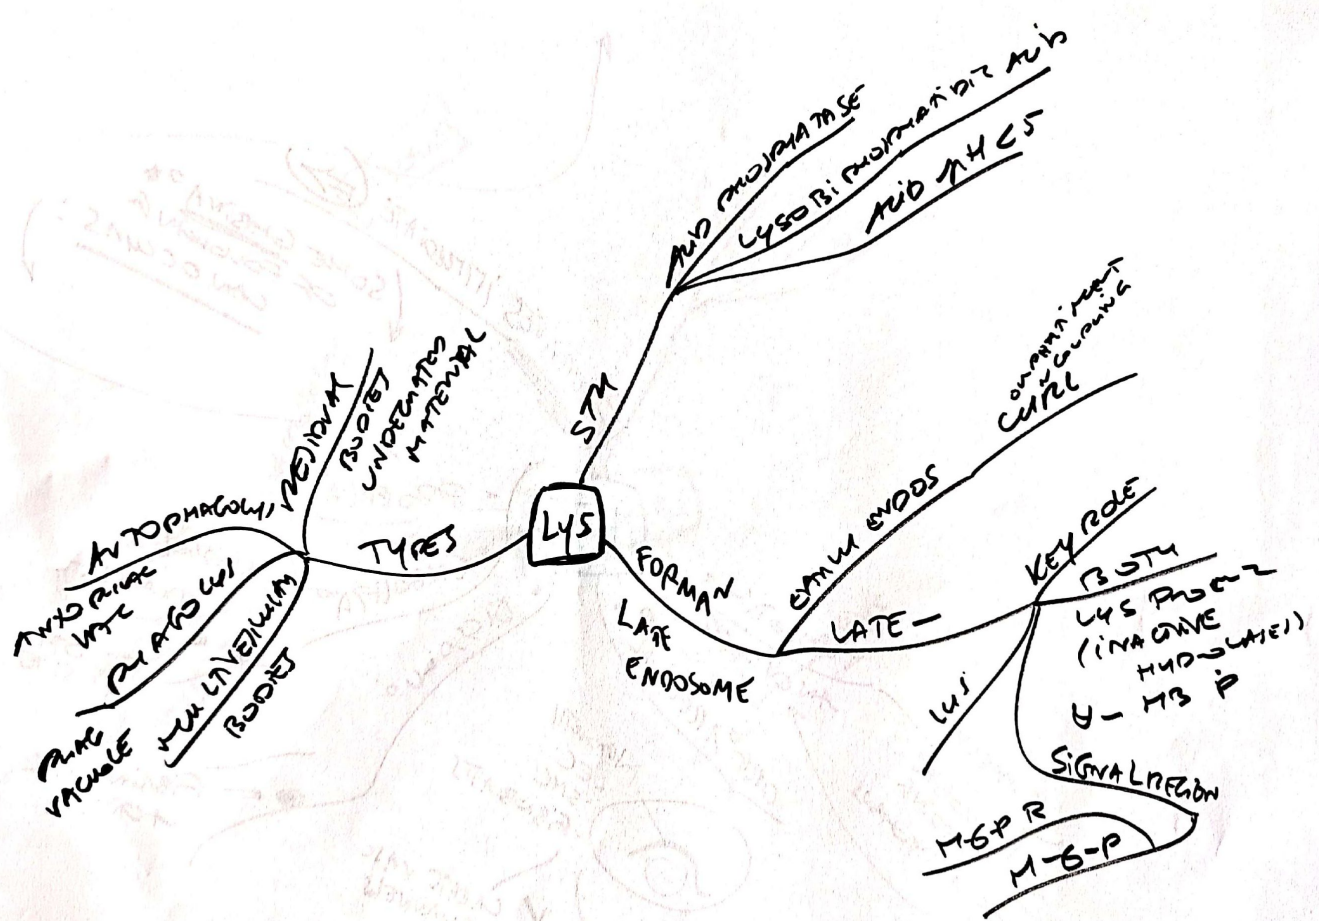 LYS
STR
ACID PHOSPHATASE
LYSOBIPHOSPHATIDIC ACID
ACID pH < 5
FORMAN
LATE
ENDOSOME
EARLY ENDOS
COMPARTMENT
UNCOUPLING
CURL
LATE -
KEY ROLE
BOTH
LYS
(INACTIVE
HYDROLASES)
MB P
LYS
SIGNAL REGION
M-6-P R
M-6-P
TYPES
RESIDUAL
BODIES
UNDEGRATED
MATERIAL
AUTOPHAGOLYS
VAC
PHAGOLYS
PHAG
VACUOLE
MULTIVESICULAR
BODIES